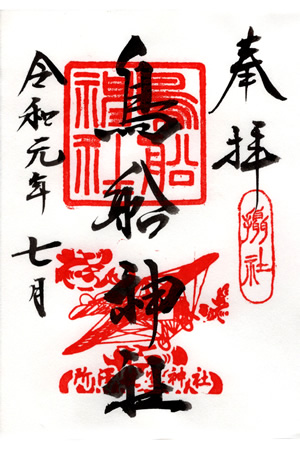 奉拝
攝社
鳥船神社
鳥船
神社
令和元年 七月
神社